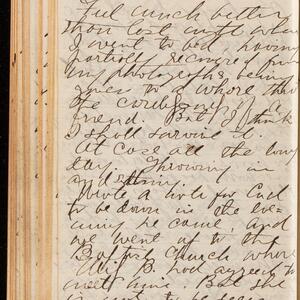 Feel much better
than last night when
I went to bed having
partially recovered from
my photographs being
given to a whore
the
friend. But I think
I shall survive it.
At case all the long
day. Throwing in
and
Wrote a note for Cad
to be down in the eve-
ning he came, and
we went up to the
Baptist Church where
B. had agreed to
meet him. But she